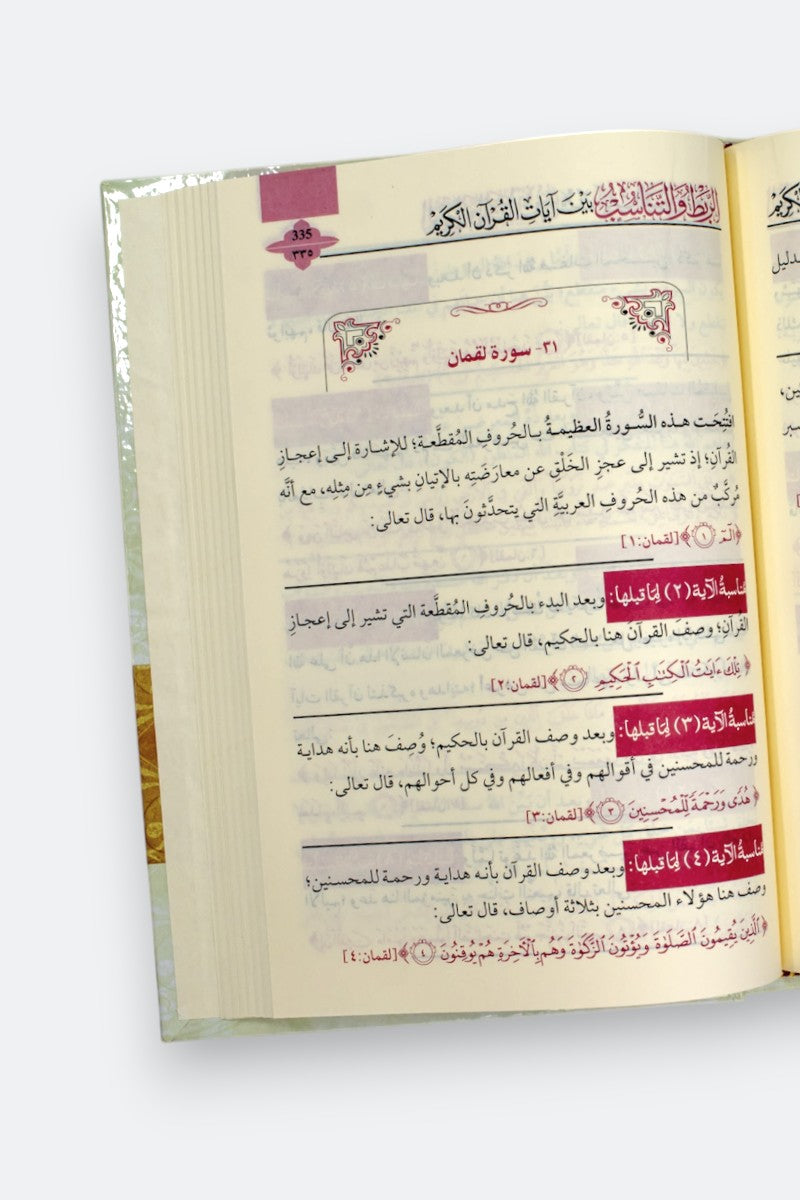 الربط والتناسب بين آيات القرآن الكريم
335
٣٣٥
٣١- سورة لقمان
افتُتِحَت هذه السُّورةُ العظيمةُ بالحُروفِ المُقطَّعة؛ للإشارة إلى إعجازِ
القُرآنِ؛ إذ تشير إلى عجزِ الخَلْقِ عن معارَضَتِه بالإتيانِ بشيءٍ مِن مِثلِه، مع أنَّه
مُركَّبٌ من هذه الحُروفِ العربيَّةِ التي يتحدَّثونَ بها، قال تعالى:
﴿الٓمٓ ١﴾ [لقمان:١]
مناسبةُ الآية (٢) لِمَا قبلها: وبعد البدء بالحُروفِ المُقطَّعة التي تشير إلى إعجازِ
القُرآنِ؛ وصفَ القرآنَ هنا بالحكيم، قال تعالى:
﴿تِلۡكَ ءَايَٰتُ ٱلۡكِتَٰبِ ٱلۡحَكِيمِ ٢﴾ [لقمان:٢]
مناسبةُ الآية (٣) لِمَا قبلها: وبعد وصف القرآن بالحكيم؛ وُصِفَ هنا بأنه هداية
ورحمة للمحسنين في أقوالهم وفي أفعالهم وفي كل أحوالهم، قال تعالى:
﴿هُدٗى وَرَحۡمَةٗ لِّلۡمُحۡسِنِينَ ٣﴾ [لقمان:٣]
مناسبةُ الآية (٤) لِمَا قبلها: وبعد وصف القرآن بأنه هداية ورحمة للمحسنين؛
وصف هنا هؤلاء المحسنين بثلاثة أوصاف، قال تعالى:
﴿ٱلَّذِينَ يُقِيمُونَ ٱلصَّلَوٰةَ وَيُؤۡتُونَ ٱلزَّكَوٰةَ وَهُم بِٱلۡأٓخِرَةِ هُمۡ يُوقِنُونَ ٤﴾ [لقمان:٤]